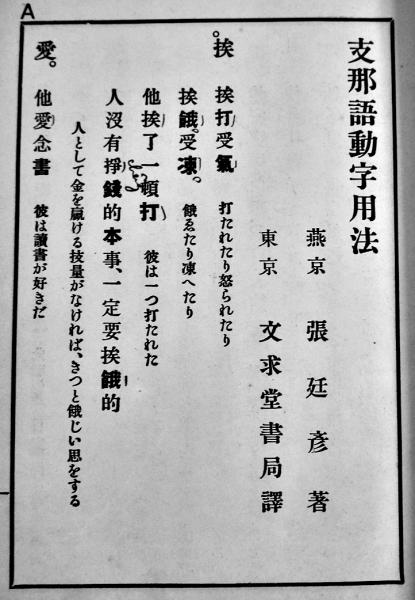 A
支那語動字用法
燕京 張廷彥 著
東京 文求堂書局譯
挨 挨打受氣 打たれたり怒られたり
挨餓。受凍。 餓ゑたり凍へたり
他挨了一頓打 彼は一つ打たれた
人沒有掙錢的本事、一定要挨餓的
人として金を贏ける技量がなければ、きつと餓じい思をする
愛。 他愛念書 彼は讀書が好きだ